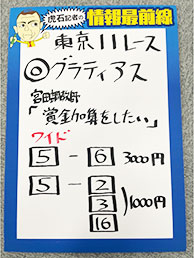 虎石記者の
情報最前線
東京11レース
◎グラティアス
「賞金加算をしたい」
ワイド
5-6 3000円
5-2
3
16
1000円